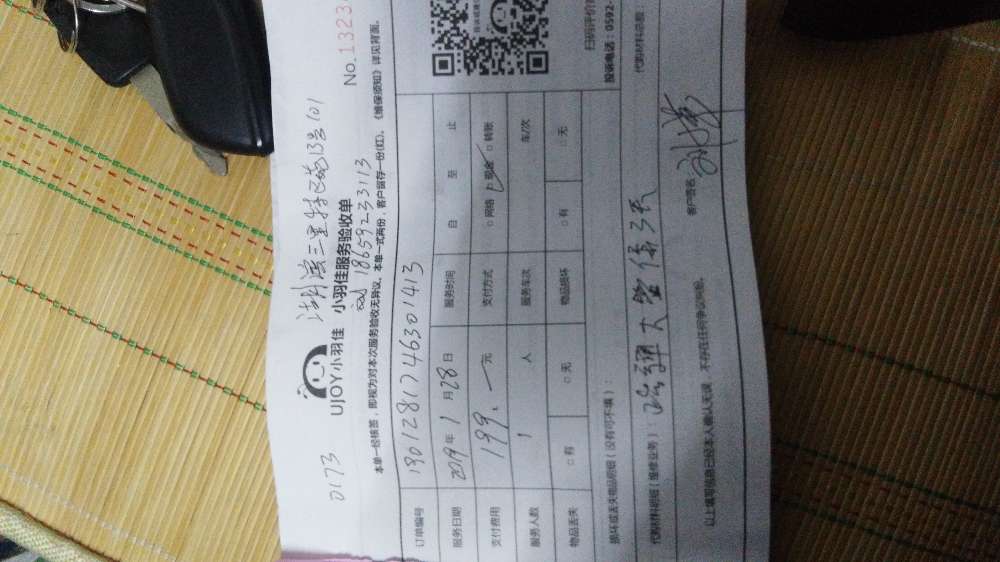 0173 湖滨三里特区巷13号101
UJOY小羽佳 小羽佳服务验收单 No.1323
18659233113
本单一经核签，即视为对本次服务验收无异议。本单一式两份，客户留存一份(红)。《维保须知》详见背面。
订单编号 1901281746301413
服务日期 2019年1月28日 服务时间 自 至 止
支付费用 199.一元 支付方式 □网络 ☑现金 □转账
服务人数 1 人 服务车次 车/次
物品丢失 □有 □无 物品损坏 □有 □无
损坏或丢失物品明细（没有可不填）：
代购材料明细（维修业务）： 疏通大管保3天
代购材料总额
以上填写信息已经本人确认无误，不存在任何争议纠纷。
客户签名
扫码评价
投诉电话：0592-